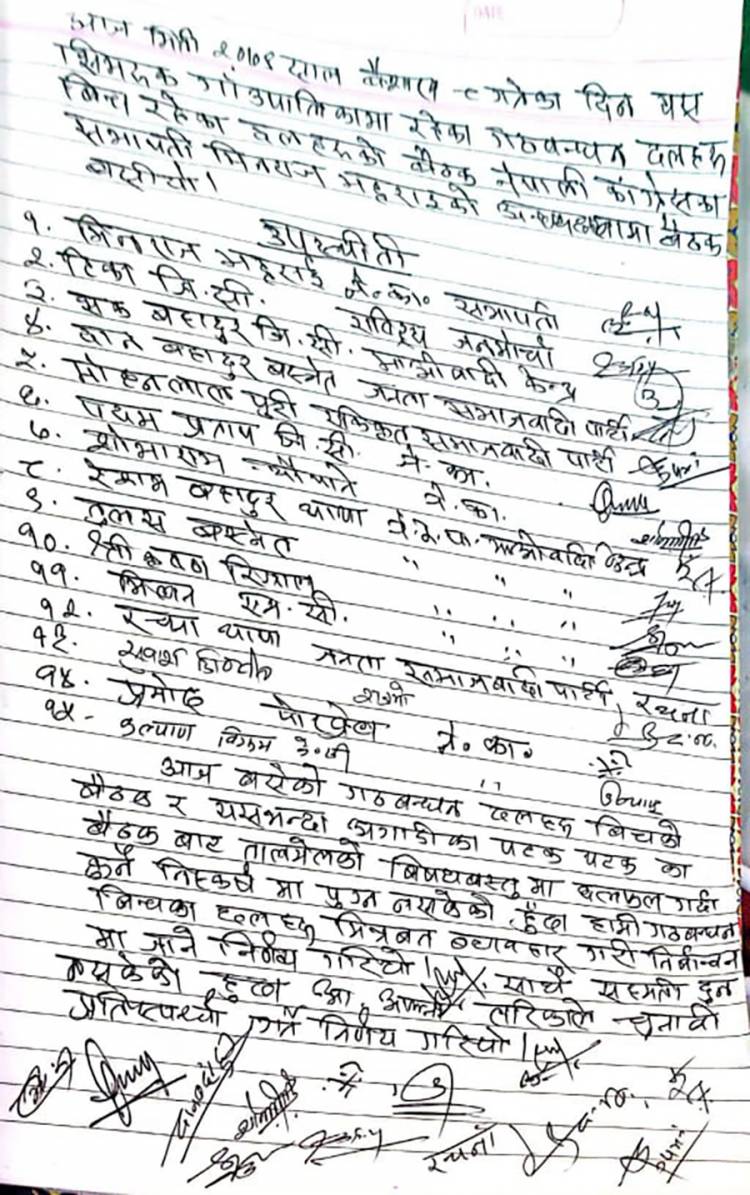 आज मिति २०७९ साल बैशाख ८ गतेका दिन यस
गाँउपालिकामा रहेका गठबन्धन दलहरु
बिच रहेका दलहरुको बैठक नेपाली कांग्रेसका
सभापती भिमराज भट्टराईको अध्यक्षतामा बैठक
बसीयो।
उपस्थीती
१. भिमराज भट्टराई ने.का. सभापती
२. टिका जि.सी. राष्ट्रिय जनमोर्चा
३. भक्त बहादुर जि.सी. माओवादी केन्द्र
४. बहादुर बस्नेत जनता समाजवादी पार्टी
५. मोहनलाल पूरी एकिकृत समाजवादी पार्टी
६. प्रताप जि.सी. ने.का.
७. शोभाराम न्यौपाने ने.का.
८. रेशम बहादुर थापा ने.क.पा. माओवादी केन्द्र
९. तुलस बस्नेत " " "
१०. श्री कृष्ण रिजाल " " "
११. मिलन एम.सी. " " "
१२. रचना थापा जनता समाजवादी पार्टी रचना
१३.
१४. प्रमोद पोख्रेल ने.का.
१५- कल्याण विक्रम के.सी "
आज बसेको गठबन्धन दलहरु बिचको
बैठक र यसभन्दा अगाडीका पटक पटक का
बैठक बाट तालमेलको बिषयबस्तुमा छलफल गर्दा
कुनै निष्कर्ष मा पुग्न नसकेको हुँदा हामी गठबन्धन
बिचका दलहरु मित्रवत व्यवहार गरी निर्वाचन
मा जाने निर्णय गरियो। साथै सहमती हुन
नसकेको हुदा आ-आफ्नो तरिकाले चुनावी
प्रतिष्पर्धा गर्ने निर्णय गरियो।
रचना